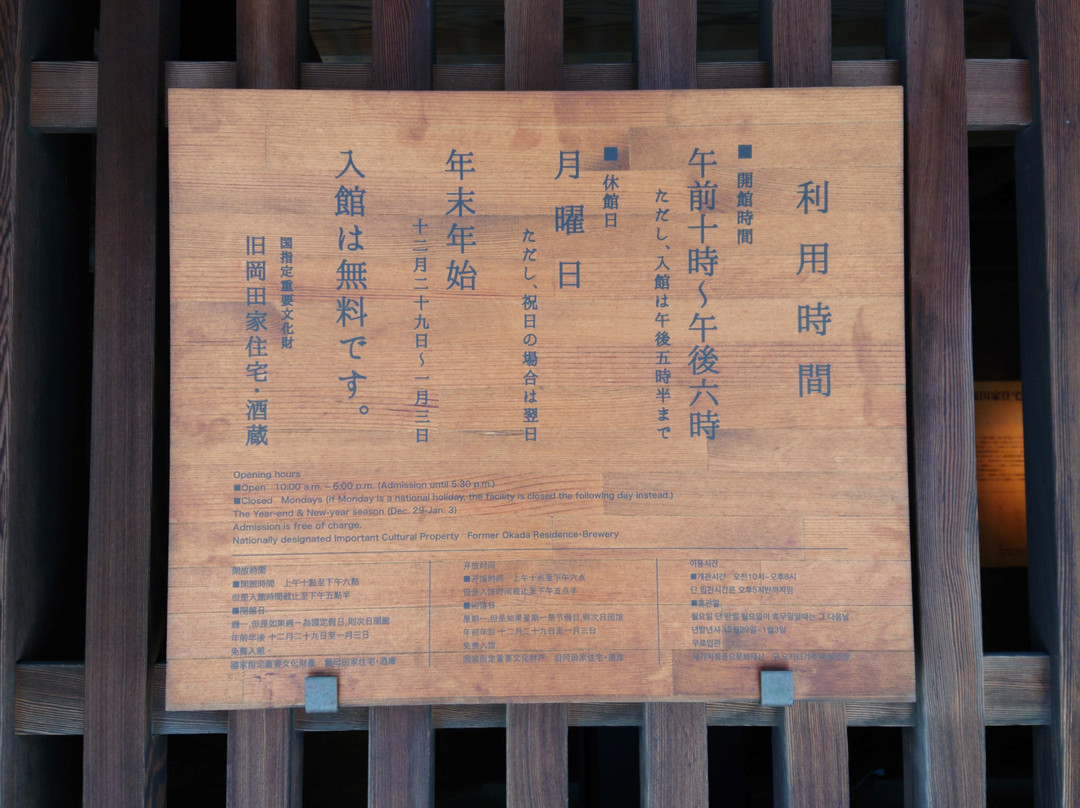 利用時間
■開館時間
午前十時〜午後六時
ただし、入館は午後五時半まで
■休館日
月曜日
ただし、祝日の場合は翌日
年末年始
十二月二十九日〜一月三日
入館は無料です。
国指定重要文化財
旧岡田家住宅・酒蔵
Opening hours
■Open 10:00 a.m. – 6:00 p.m. (Admission until 5:30 p.m.)
■Closed Mondays (If Monday is a national holiday, the facility is closed the following day instead.)
The Year-end & New-year season (Dec. 29-Jan. 3)
Admission is free of charge.
Nationally designated Important Cultural Property Former Okada Residence・Brewery
開放時間
■開館時間 上午十點至下午六點
但是入館時間截止至下午五點半
■閉館日
週一,但是如果週一為國定假日,則次日閉館
年前年後 十二月二十九日至一月三日
免費入館
國家指定重要文化財產 舊岡田家住宅・酒庫
开放时间
■开馆时间 上午十点至下午六点
但是入馆时间截止至下午五点半
■闭馆日
星期一,但是如果星期一是节假日,则次日闭馆
年前年后 十二月二十九日至一月三日
免费入馆
国家指定重要文化财产 旧冈田家住宅・酒库
이용시간
■개관시간 오전10시~오후6시
단 입관시간은 오후5시반까지임
■휴관일
월요일 단 만일 월요일이 휴무일일때는 그 다음날
년말년시 12월29일~1월3일
무료입관
국가지정중요문화재산 구